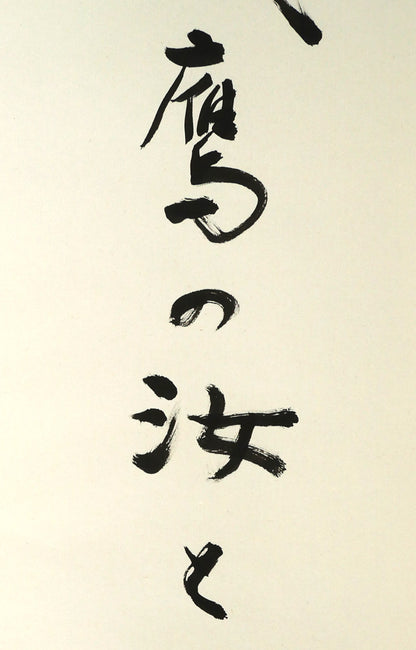 鷹の汝と